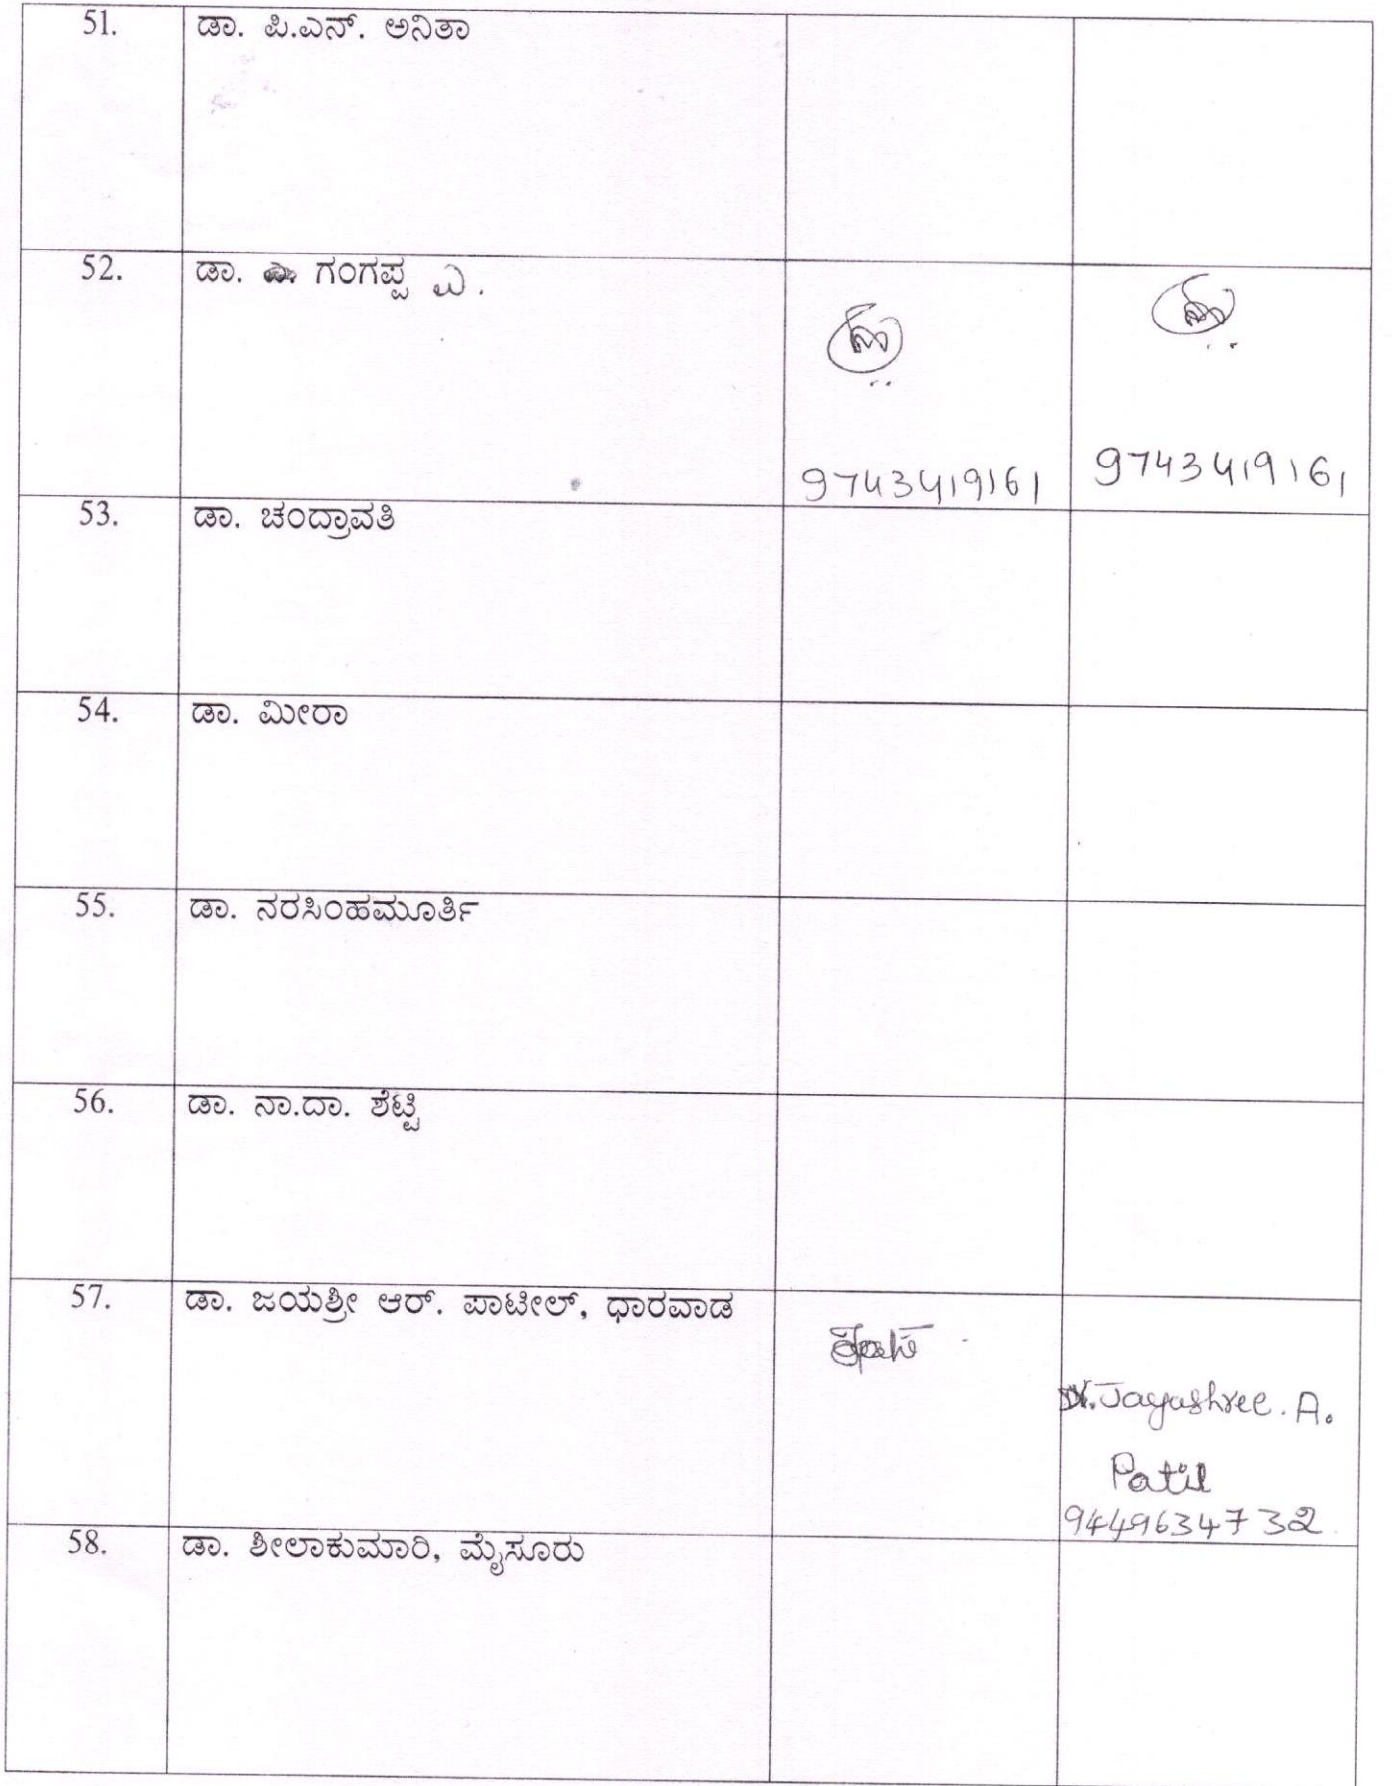 51. ಡಾ. ಪಿ.ಎನ್. ಅನಿತಾ
52. ಡಾ. ಗಂಗಪ್ಪ ಎ.
9743419161 9743419161
53. ಡಾ. ಚಂದ್ರಾವತಿ
54. ಡಾ. ಮೀರಾ
55. ಡಾ. ನರಸಿಂಹಮೂರ್ತಿ
56. ಡಾ. ನಾ.ದಾ. ಶೆಟ್ಟಿ
57. ಡಾ. ಜಯಶ್ರೀ ಆರ್. ಪಾಟೀಲ್, ಧಾರವಾಡ
Dr. Jayashree. A.
Patil
9449634732
58. ಡಾ. ಶೀಲಾಕುಮಾರಿ, ಮೈಸೂರು